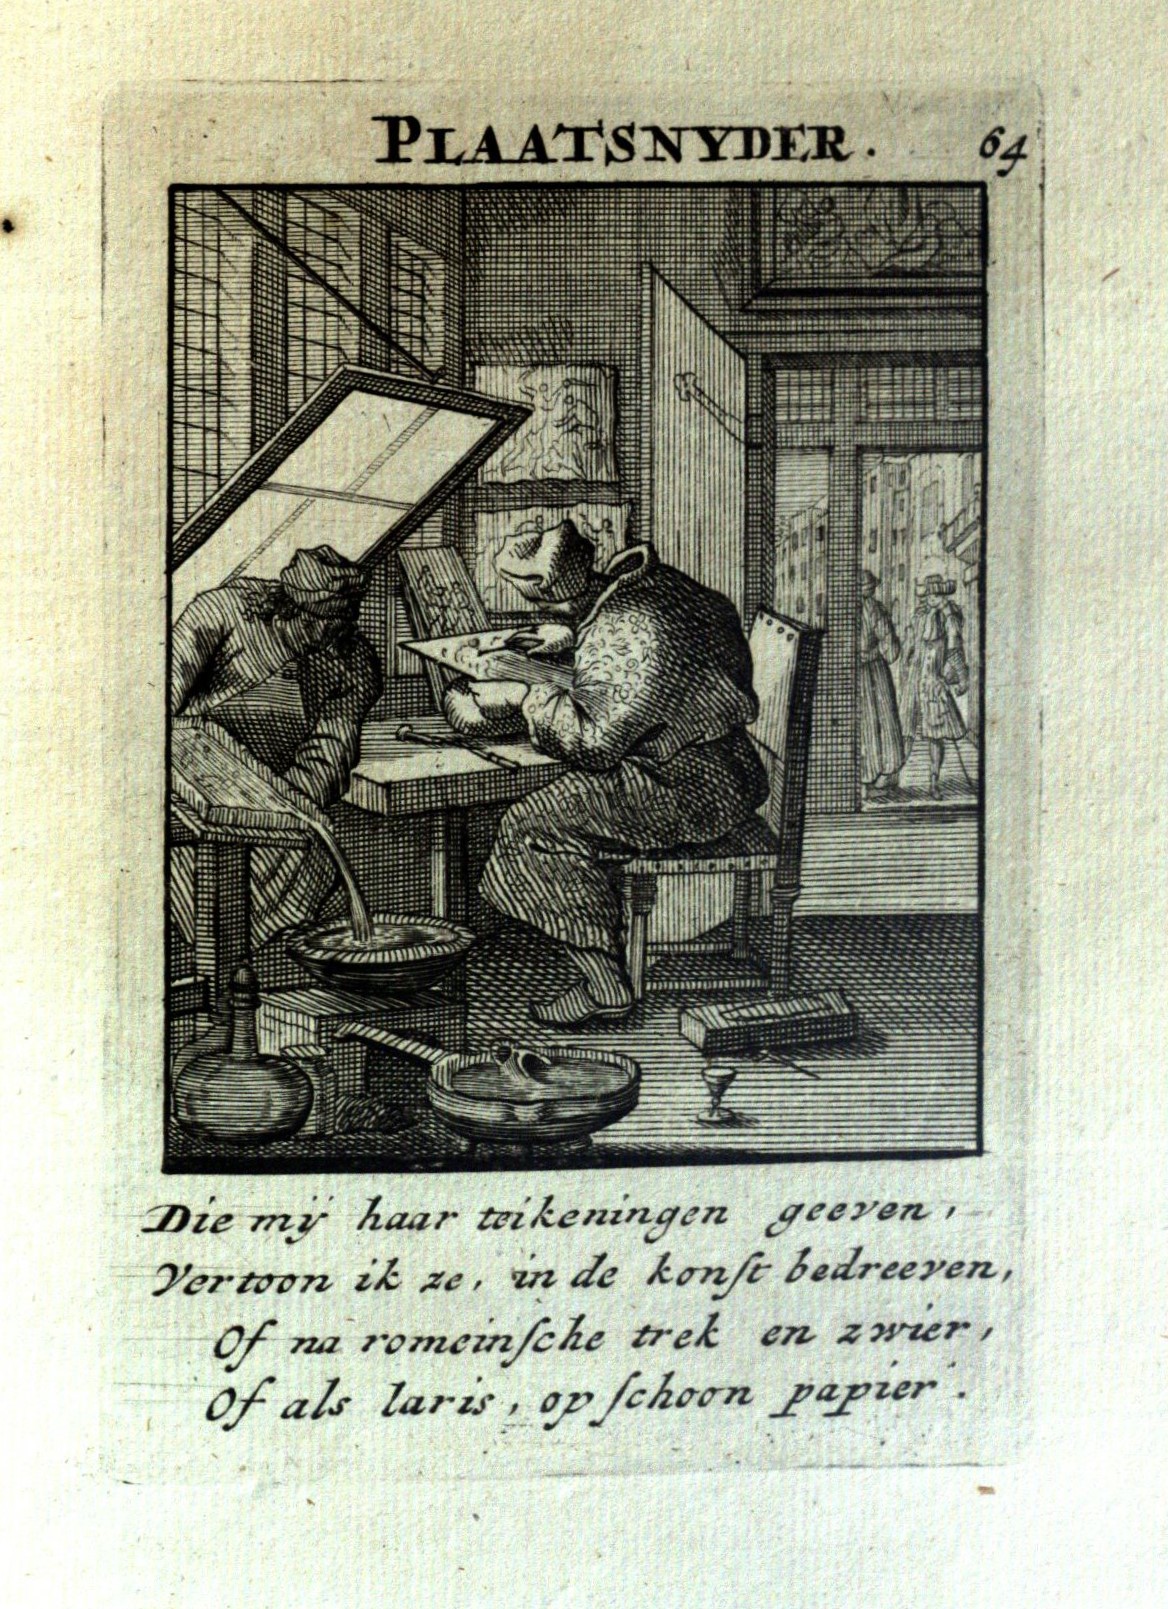 PLAATSNYDER.
64
Die mÿ haar teikeningen geeven,
Vertoon ik ze, in de konſt bedreeven,
Of na romeinſche trek en zwier,
Of als laris, op ſchoon papier.